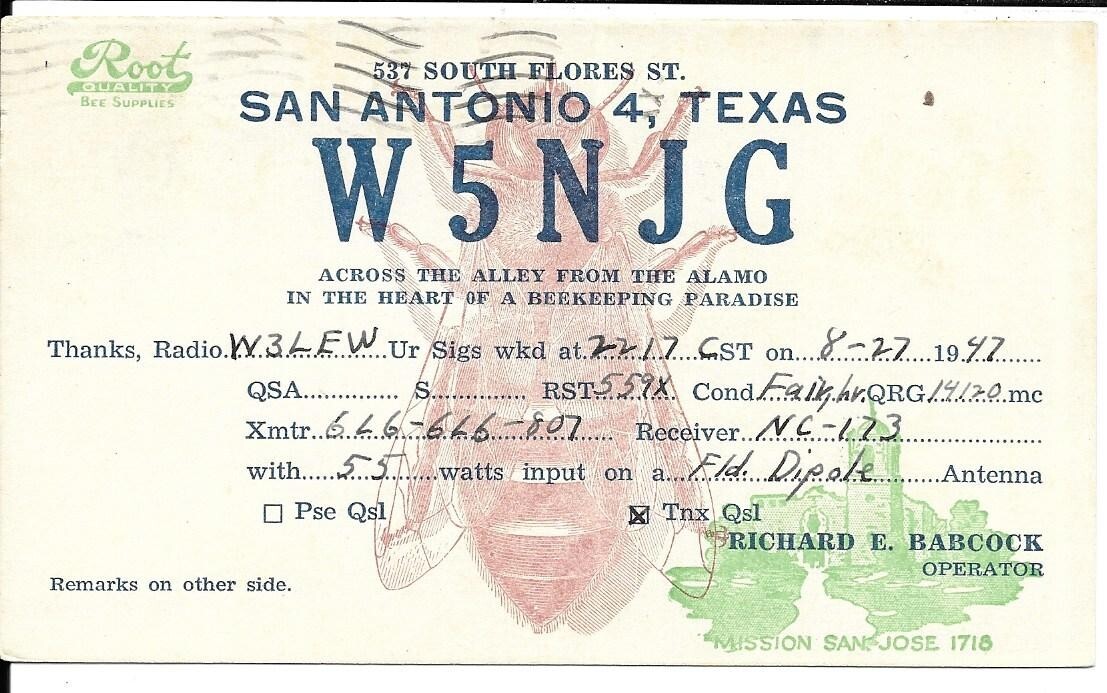 Root
QUALITY
BEE SUPPLIES
537 SOUTH FLORES ST.
SAN ANTONIO 4, TEXAS
W5NJG
ACROSS THE ALLEY FROM THE ALAMO
IN THE HEART OF A BEEKEEPING PARADISE
Thanks, Radio W3LEW Ur Sigs wkd at 2217 CST on 8-27 1947
QSA S RST 559X Cond Fair, hr. QRG 14120 mc
Xmtr 6L6-6L6-807 Receiver NC-173
with 55 watts input on a Fld. Dipole Antenna
☐ Pse Qsl ☒ Tnx Qsl
RICHARD E. BABCOCK
OPERATOR
Remarks on other side.
MISSION SAN JOSE 1718